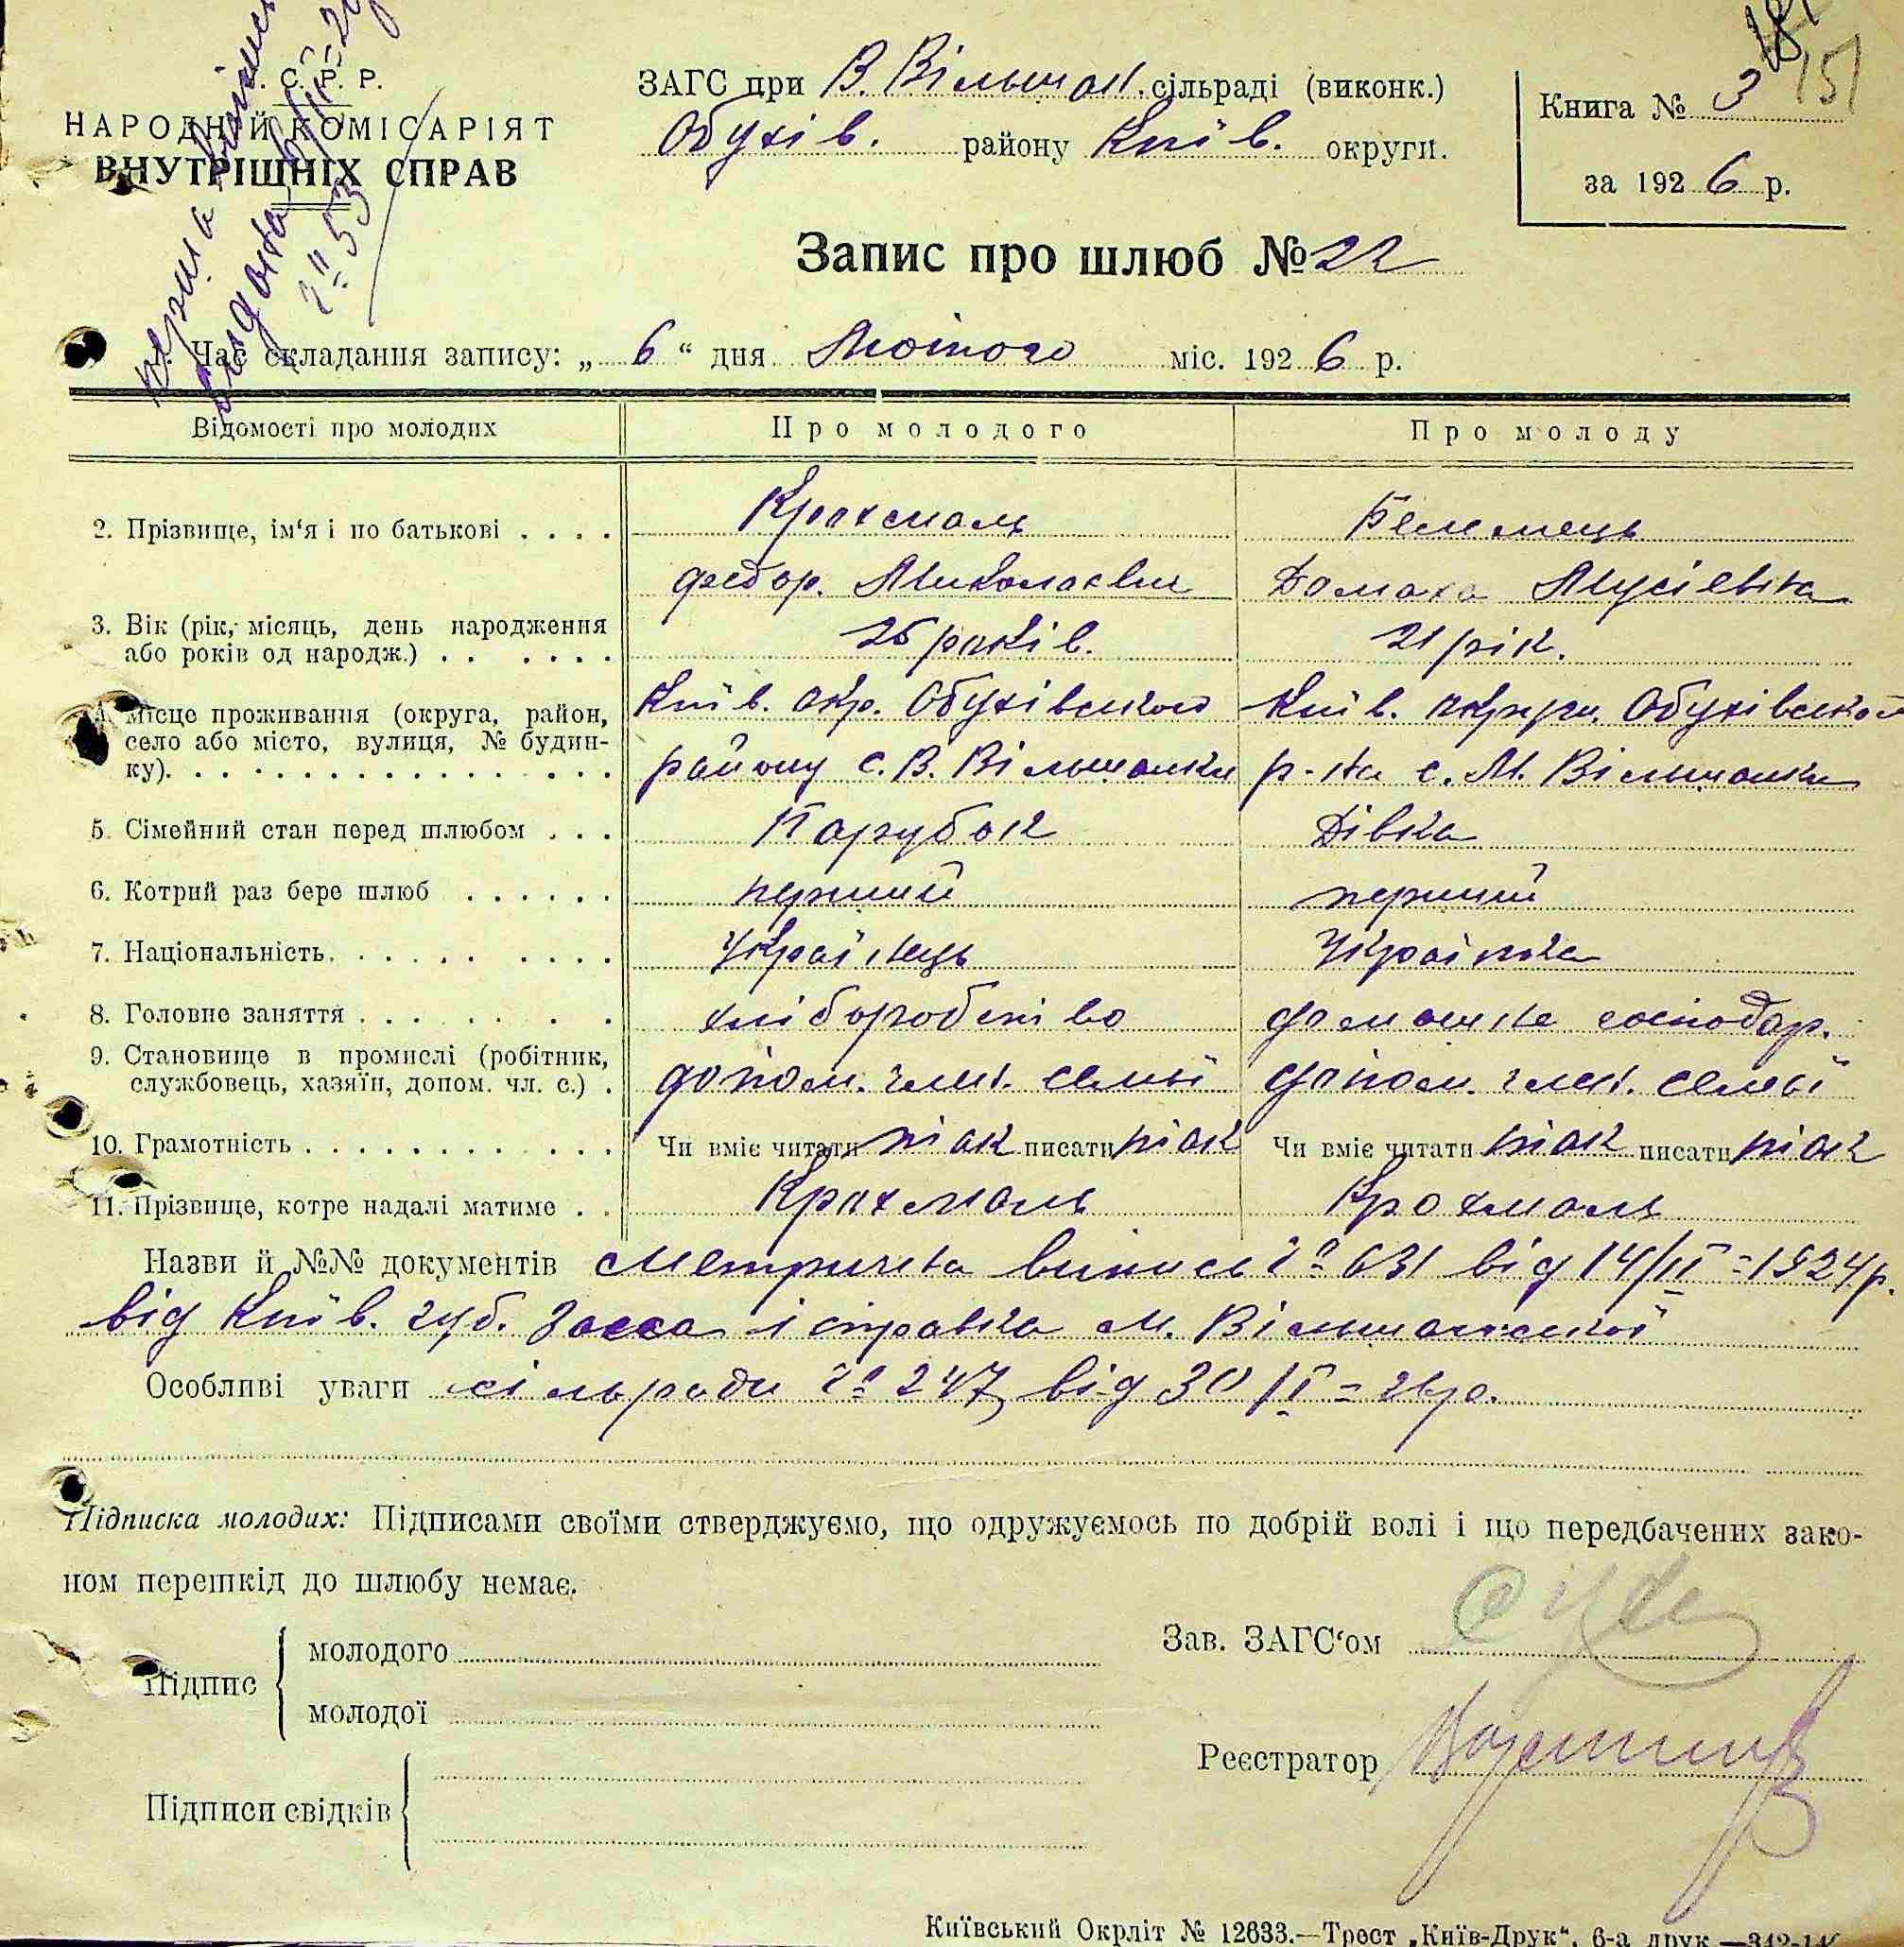 С. Р. Р.
НАРОДНІЙ КОМІСАРІЯТ
ВНУТРІШНІХ СПРАВ
перша випись
видана 6/II-26
№ 53
ЗАГС при В. Вільшан. сільраді (виконк.)
Обухів. району Київ. округи.
Книга № 3
151
за 1926 р.
Запис про шлюб № 22
1. Час складання запису: „ 6 “ дня Лютого міс. 1926 р.
Відомості про молодих Про молодого Про молоду
2. Прізвище, ім‘я і по батькові . . . . Крохмаль
Федор. Миколаєвич Домаха Мусіевна
3. Вік (рік, місяць, день народження
або років од народж.) . . . . . . 25 років. 21 рік.
4. Місце проживання (округа, район, Київ. окр. Обухівського Київ. округи Обухівського
село або місто, вулиця, № будин-
ку). . . . . . . . . . . . . . . . району с. В. Вільшанки р-на с. М. Вільшанки
5. Сімейний стан перед шлюбом . . . Парубок Дівка
6. Котрий раз бере шлюб . . . . . . перший перший
7. Національність. . . . . . . . . . Українець Українка
8. Головне заняття . . . . . . . хліборобство домашне господар.
9. Становище в промислі (робітник,
службовець, хазяїн, допом. чл. с.) . допом. член. семьї допом. член. семьї
10. Грамотність . . . . . . . . . . . . Чи вміє читати так писати так Чи вміє читати так писати так
11. Прізвище, котре надалі матиме . . Крохмаль Крохмаль
Назви й №№ документів Метрична випись № 631 від 14/II-1924р.
від Київ. губ. Загса і справка М. Вільшанської
Особливі уваги сільради № 247 від 30/I-26р.
Підписка молодих: Підписами своїми стверджуємо, що одружуємось по добрій волі і що передбачених зако-
ном перешкід до шлюбу немає.
Зав. ЗАГС‘ом
Підпис { молодого
молодої
Реєстратор
Підписи свідків {
Київський Окрліт № 12633.—Трест „Київ-Друк“, 6-а друк.—342-